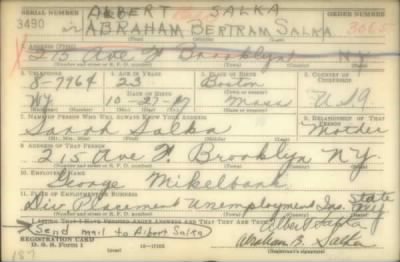 SERIAL NUMBER ALBERT SALKA ORDER NUMBER
3490 or ABRAHAM BERTRAM SALKA 3065
(First) (Middle) (Last)
2. ADDRESS (Print)
215 Ave F Brooklyn N Y
3. TELEPHONE 4. AGE IN YEARS 5. PLACE OF BIRTH 6. COUNTRY OF CITIZENSHIP
8-7964 23 Boston
10-27-17 Mass USA
7. NAME OF PERSON WHO WILL ALWAYS KNOW YOUR ADDRESS 8. RELATIONSHIP OF THAT PERSON
Sarah Salka Mother
9. ADDRESS OF THAT PERSON
215 Ave F. Brooklyn NY.
10. EMPLOYER'S NAME
George Mikelbank
11. PLACE OF EMPLOYMENT OR BUSINESS
Div. Placement Unemployment Ins. State
I AFFIRM THAT I HAVE VERIFIED ABOVE ANSWERS AND THAT THEY ARE TRUE.
Send mail to Albert Salka Albert Salka
REGISTRATION CARD
D. S. S. FORM 1 Abraham B. Salka
187